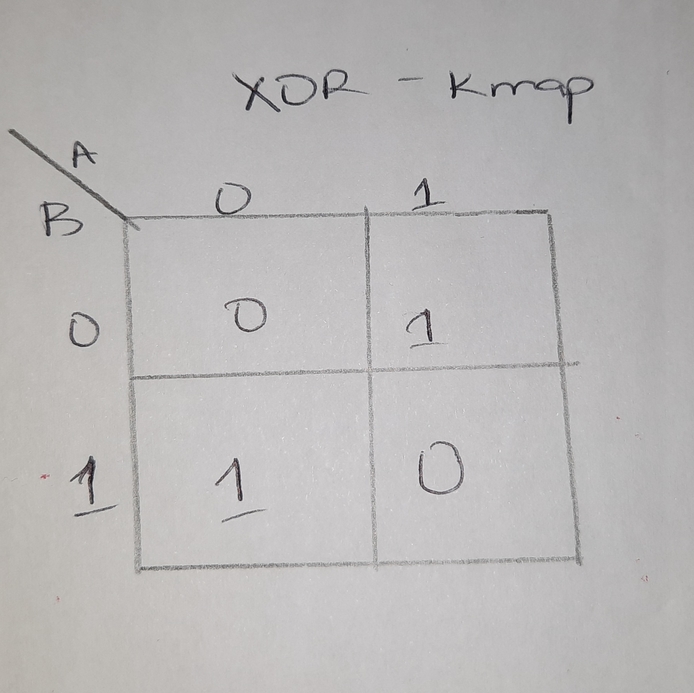 XOR - Kmap
A
B
0 1
0 0 1
1 1 0